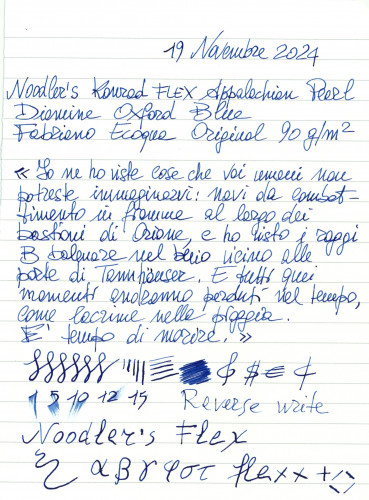 19 Novembre 2024
Noodler's Konrad FLEX Appalachian Pearl
Diamine Oxford Blue
Fabriano Ecoqua Original 90 g/m²
« Io ne ho viste cose che voi umani non
potreste immaginarvi: navi da combat-
timento in fiamme al largo dei
bastioni di Orione, e ho visto i raggi
B balenare nel buio vicino alle
porte di Tannhäuser. E tutti quei
momenti andranno perduti nel tempo,
come lacrime nella pioggia.
E' tempo di morire. »
$ € ¢
1 5 10 12 15 Reverse write
Noodler's Flex
α β γ φ σ τ flexx +